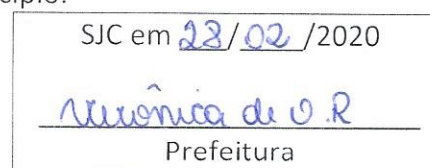 cípio.
SJC em 28/02/2020
Verônica de O.R
Prefeitura